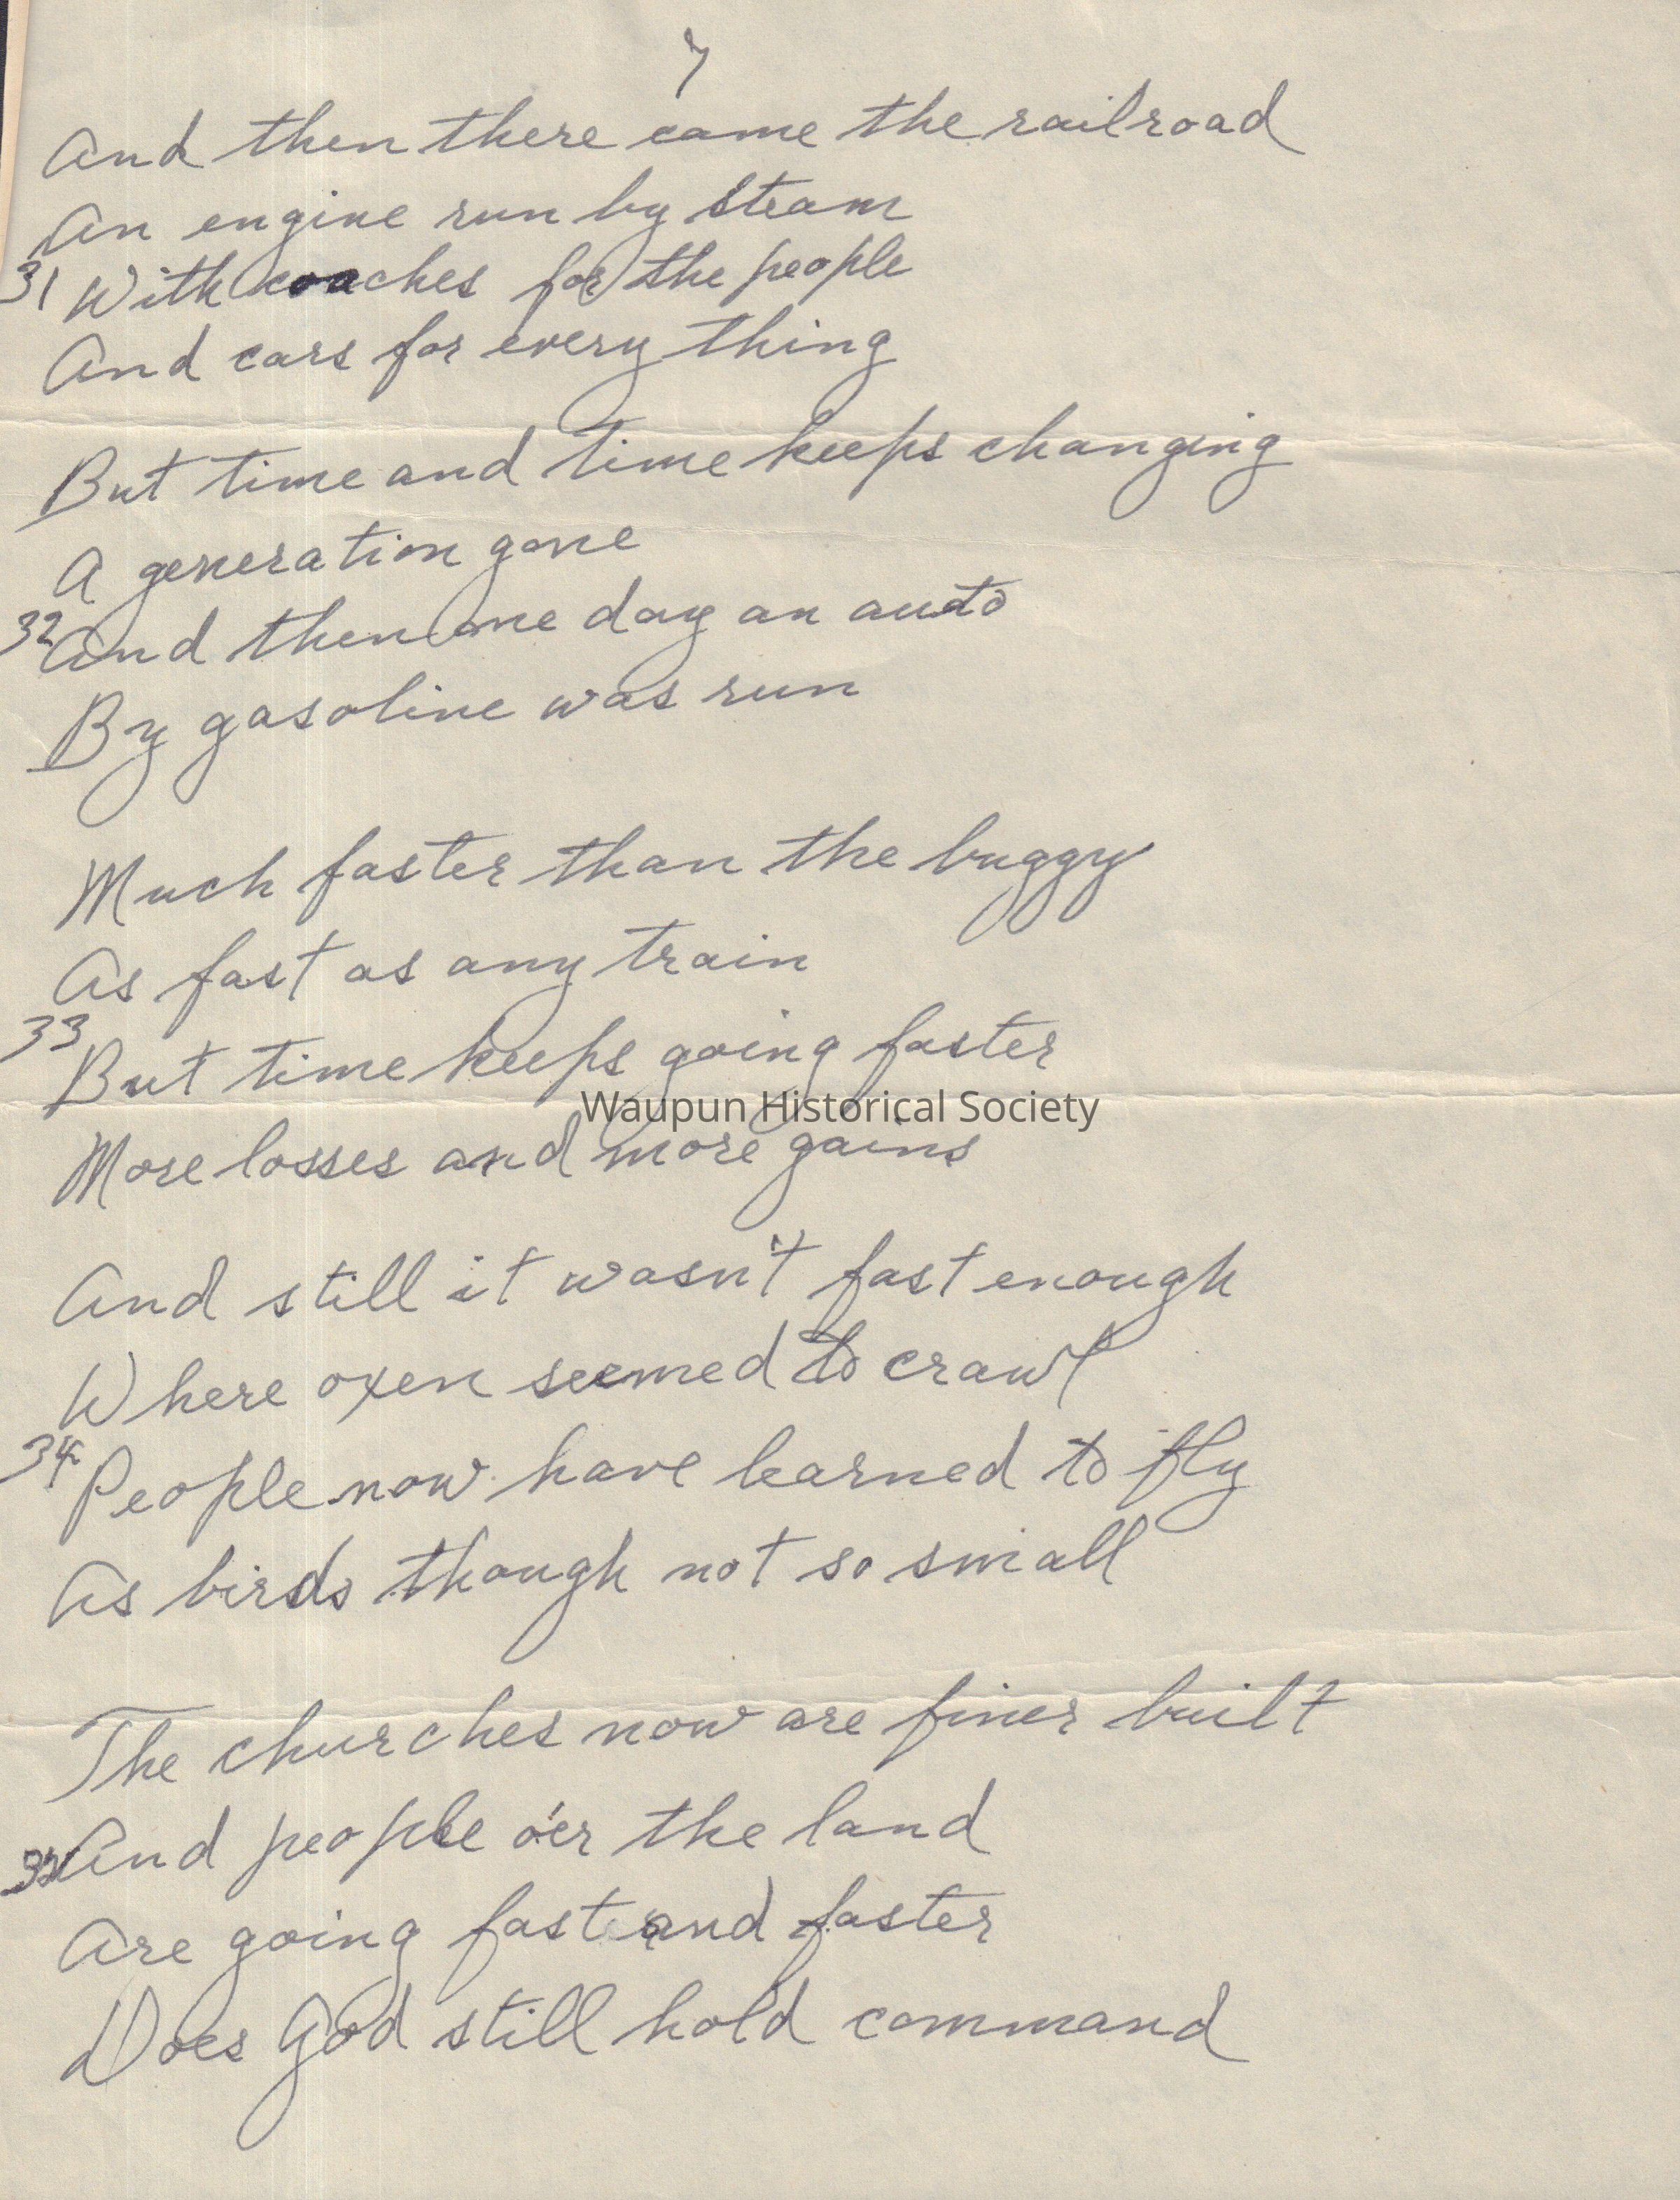 7
And then there came the railroad
An engine run by steam
31 With coaches for the people
And cars for every thing
But time and time keeps changing
A generation gone
32 And then one day an auto
By gasoline was run
Much faster than the buggy
As fast as any train
33 But time keeps going faster
Waupun Historical Society
More losses and more gains
And still it wasn't fast enough
Where oxen seemed to crawl
34 People now have learned to fly
As birds though not so small
The churches now are finer built
And people o'er the land
Are going fast and faster
Does God still hold command